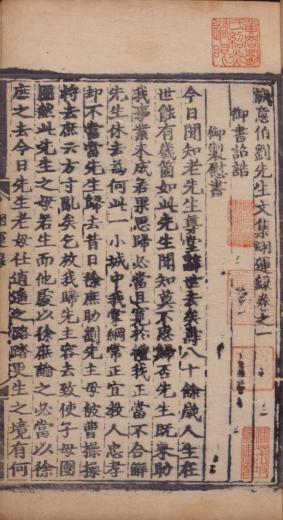 誠意伯劉先生文集翊運錄卷之一
御書詔誥
御製慰書
今日聞知老先生尊堂辭世去矣壽八十餘歲人生在
世能有幾箇如此先生聞知莫不思歸否先生旣來助
我事業未成若果思歸必當且寬於禮我正當不合解
先生休去為何此一小城中我掌綱常正宜敎人忠孝
却不當當先生歸去昔日徐庶助劉先主母被曹操操
將去庶云方寸亂矣乞放我歸先主容去致使子母團
圓然此先生之母若生而他處以徐庶論之必當以徐
庶之去今日先生老母任逍遙之路踏更生之境有何